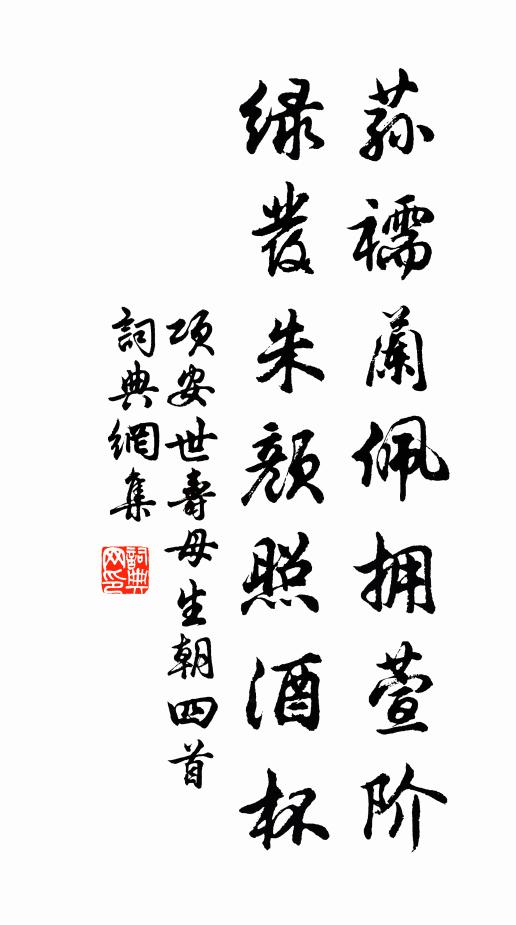 荪襦蘭佩拥萱阶
绿發朱颜照酒杯
项安世壽母生朝四首
詞典網集
詞典网印